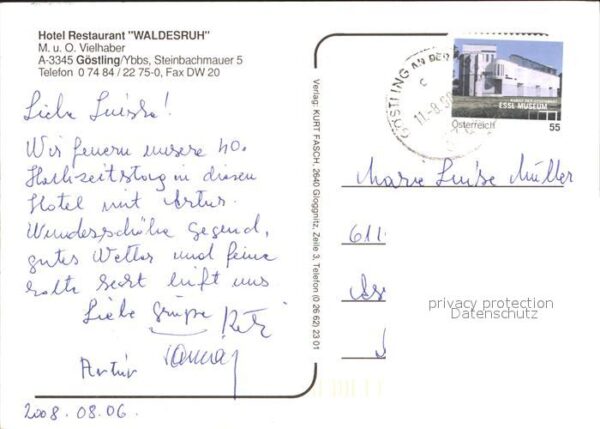 Hotel Restaurant "WALDESRUH"
M. u. O. Vielhaber
A-3345 Göstling/Ybbs, Steinbachmauer 5
Telefon 0 74 84 / 22 75-0, Fax DW 20
Liebe Luise!
Wir feuern unsere 40.
Hochzeitstag in diesen
Hotel mit Artur.
Wunderschöhe Gegend,
gutes Wetter und feine
Liebe Grüße
Artúr
2008.08.06.
Verlag: KURT FASCH, 2640 Gloggnitz, Zeile 3, Telefon (0 26 62) 23 01
GÖSTLING AN DER
KUNST DER GEGENWART
ESSL MUSEUM
Österreich 55
Marie Luise Müller
611
privacy protection
Datenschutz